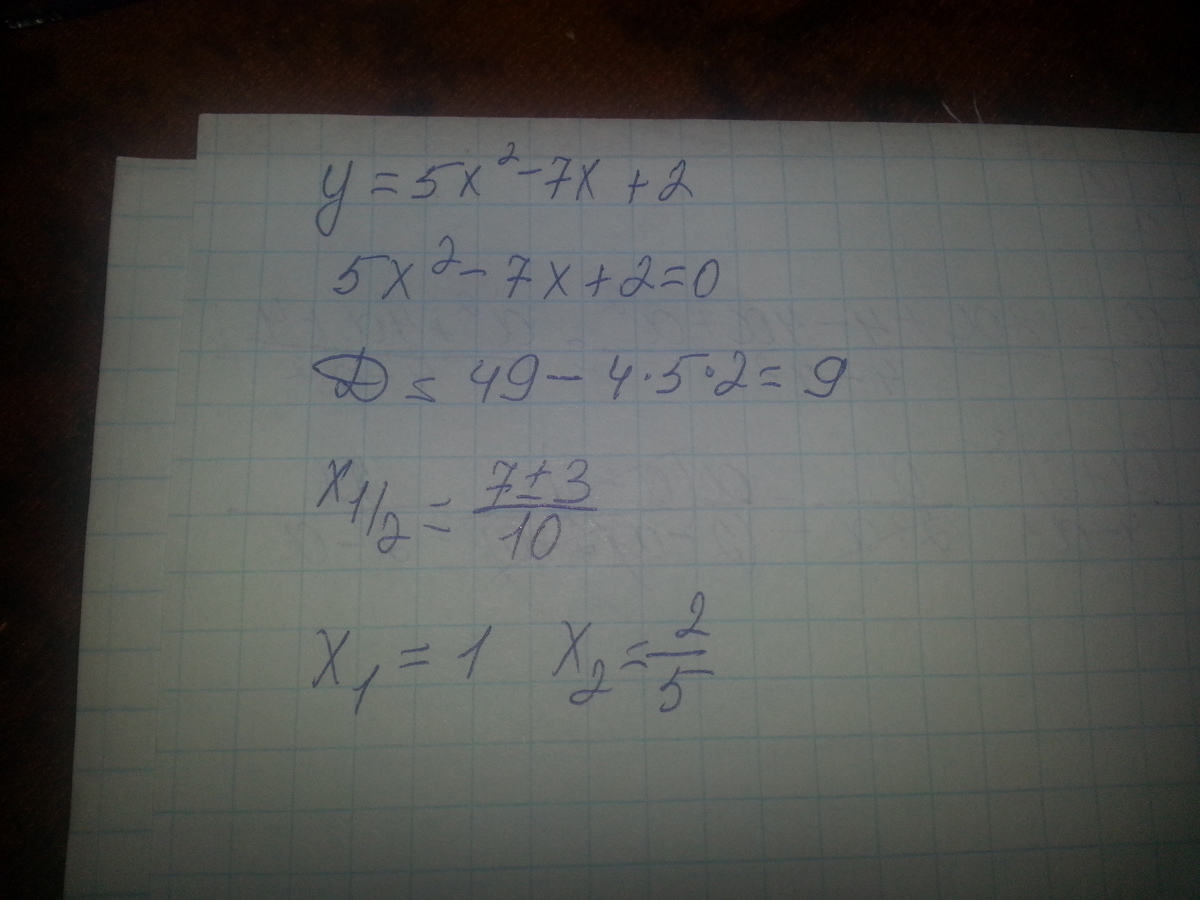 y = 5x² - 7x + 2
5x² - 7x + 2 = 0
D = 49 - 4·5·2 = 9
x₁/₂ = (7 ± 3)/10
x₁ = 1 x₂ = 2/5